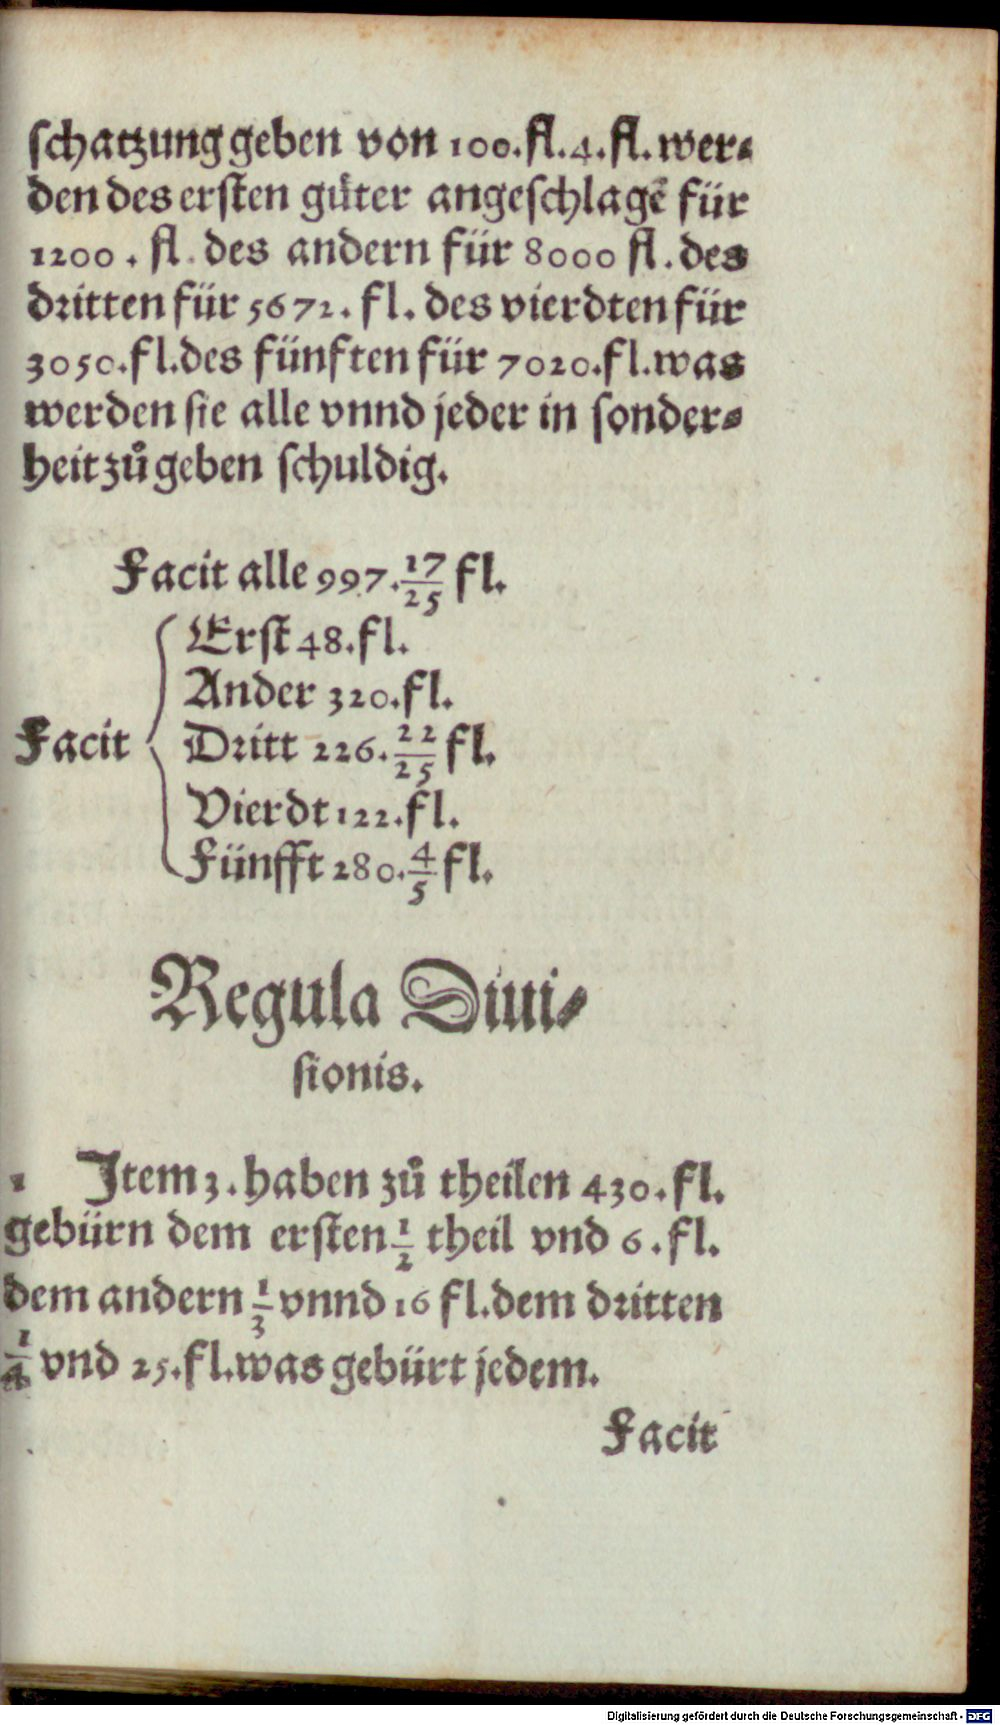 ſchatzung geben von 100. fl. 4. fl. wer⸗
den des erſten güter angeſchlagē für
1200. fl. des andern für 8000 fl. des
dritten für 5672. fl. des vierdten für
3050. fl. des fünften für 7020. fl. was
werden ſie alle vnnd jeder in ſonder⸗
heit zů geben ſchuldig.
Facit alle 997. 17/25 fl.
Erſt 48. fl.
Ander 320. fl.
Facit Dritt 226. 22/25 fl.
Vierdt 122. fl.
Fünfft 280. 4/5 fl.
Regula Diui⸗
ſionis.
1 Item 3. haben zů theilen 430. fl.
gebürn dem erſten 1/2 theil vnd 6. fl.
dem andern 1/3 vnnd 16 fl. dem dritten
1/4 vnd 25. fl. was gebürt jedem.
Facit
Digitalisierung gefördert durch die Deutsche Forschungsgemeinschaft - DFG